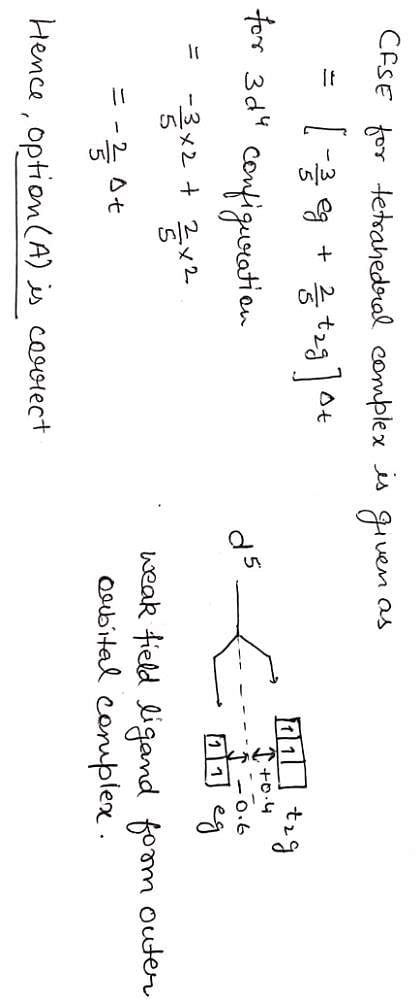 CFSE for tetrahedral complex is given as
= [ -3/5 eg + 2/5 t2g ] Δt
for 3d⁴ configuration
= -3/5 × 2 + 2/5 × 2
= -2/5 Δt
Hence, option (A) is correct
d⁵
1 1
t2g
+0.4
-0.6
1 1
eg
weak field ligand form outer
orbital complex.